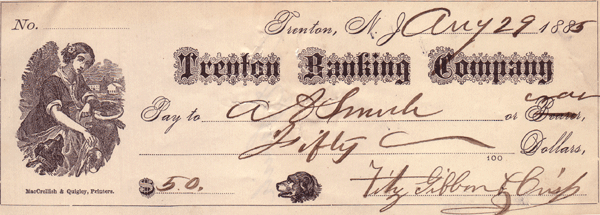 No. Trenton, N. J. Aug 29 1885
Trenton Banking Company
Pay to A A Smith or order Bearer,
Fifty 100 Dollars,
MacCrellish & Quigley, Printers.
$50. Fitz Gibbon & Crisp